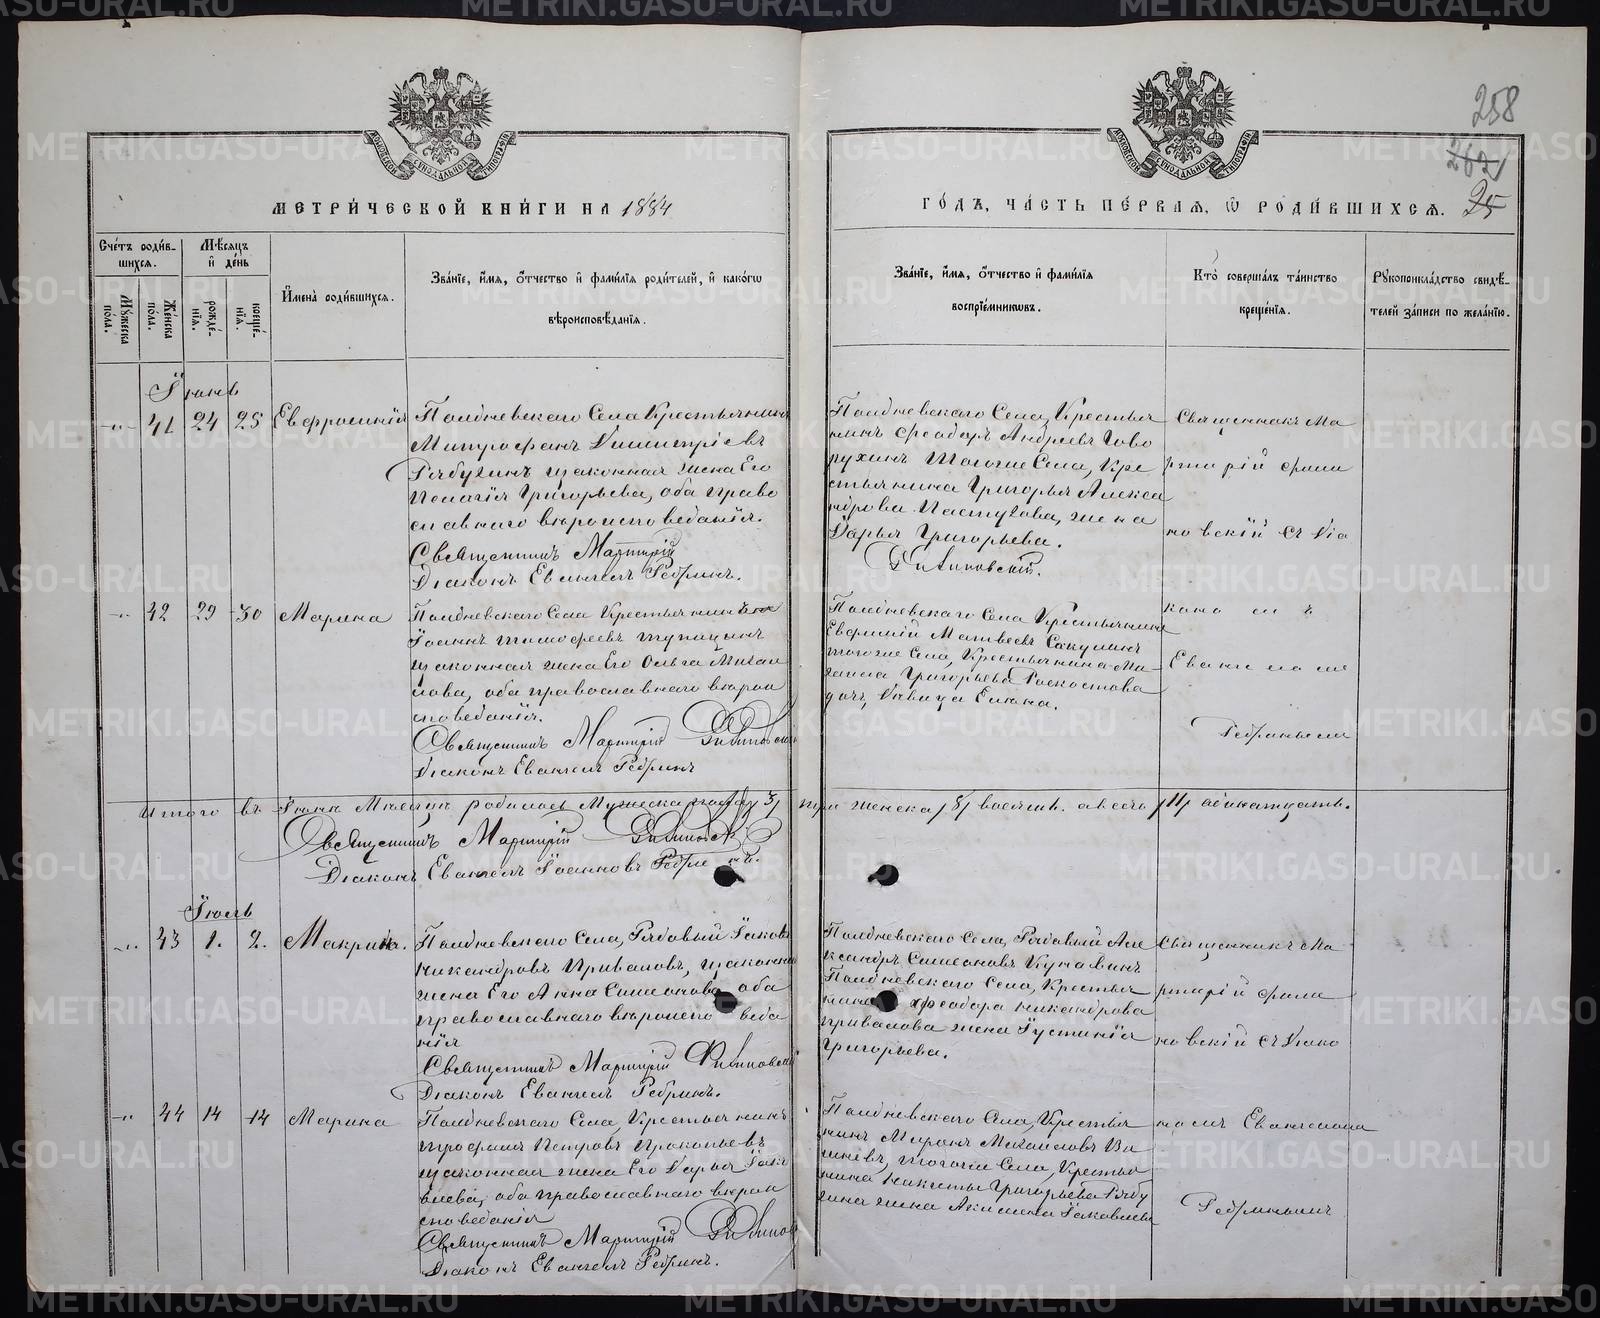 258
262
25
МЕТРИ́ЧЕСКОЙ КНИ́ГИ НА 1884
ГО́ДЪ, ЧА́СТЬ ПЕ́РВАЯ, Ѿ РОДИ́ВШИХСЯ.
Сче́тъ роди́в-
шихся.
Мѣ́сяцъ
и де́нь
Му́жеска
по́ла.
Же́нска
по́ла.
рожде́-
нїя.
креще́-
нїя.
Имена̀ роди́вшихся.
Зва́нїе, и́мя, о́тчество и фами́лїя роди́телей, и како́гѡ
вѣроисповѣ́данїя.
Зва́нїе, и́мя, о́тчество и фами́лїя
воспрїе́мникѡвъ.
Кто̀ соверша́лъ та́инство
креще́нїя.
Рꙋкоприкла́дство свидѣ́-
телей за́писи по жела́нїю.
Іюнь
41 24 25 Евфросинія
Полдневскаго Села Крестьянинъ
Митрофанъ Димитріевъ
Рябухинъ законная жена Его
Пелагія Григорьева, оба право
славнаго вѣроисповеданія.
Священникъ Мартирій
Діаконъ Евангелъ Ребринъ.
Полдневскаго Села, Крестья
нинъ Феодоръ Андреевъ Гово
рухинъ Тогоже Села, Кре
стьянина Григорья Алекса
ндрова Пастухова, жена
Дарья Григорьева.
Священникъ Ма
ртирій
новскій съ Діа
42 29 30 Марина
Полдневскаго Села Крестьянинъ
Іоаннъ Тимофеевъ
законная жена Его Ольга Михаи
лова, оба православнаго вѣрои
споведанія.
Священникъ Мартирій
Діаконъ Евангелъ Ребринъ
Полдневскаго Села Крестьянинъ
Евфимій Матвеевъ Сакулинъ
тогоже Села, Крестьянина Ми
хаила Григорьева
дочь, Дѣвица Елена.
кономъ
Евангеломъ
Ребринымъ
Итого въ Іюнѣ Мѣсяцѣ родилось Мужеска полу /3/ три женска /8/ восемь. а всего /11/ одинатцать.
Священникъ Мартирій
Діаконъ Евангелъ Іоанновъ
Іюль
43 1. 2. Макрина.
Полдневскаго Села, Рядовый Іаковъ
Никандровъ Приваловъ, законная
жена Его Анна Симеонова, оба
православнаго вѣроиспо веда
нія
Священникъ Мартирій
Діаконъ Евангелъ Ребринъ.
Полдневскаго Села, Рядовый Але
ксандръ Симеоновъ Кунавинъ
Полдневскаго Села, Крестья
нина Феодора Никандрова
Привалова жена Іустинія
Григорьева.
Священникъ Ма
ртирій
новскій съ Діако
44 14 14 Марина
Полдневскаго Села, Крестьянинъ
Трофимъ Петровъ Прокопьевъ
законная жена Его Дарья Іаков
лева, оба православнаго вѣрои
споведанія
Священникъ Мартирій
Діаконъ Евангелъ Ребринъ.
Полдневскаго Села, Крестья
нинъ Миронъ Михаиловъ
тогоже Села, Крестья
нина Никиты Григорьева Рябу
хина жена Акилина Іаковлева
номъ Евангеломъ
Ребринымъ
METRIKI.GASO-URAL.RU